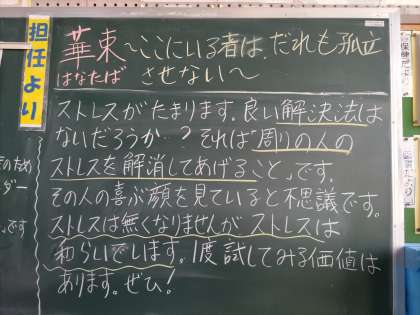 担任より
華束～ここにいる者は、だれも孤立
はなたば　させない～
ストレスがたまります。良い解決法は
ないだろうか？それは「周りの人の
ストレスを解消してあげること」です。
その人の喜ぶ顔を見ていると不思議です。
ストレスは無くなりませんがストレスは
和らいでいます。1度試してみる価値は
あります。ぜひ！
のため
ダー
です